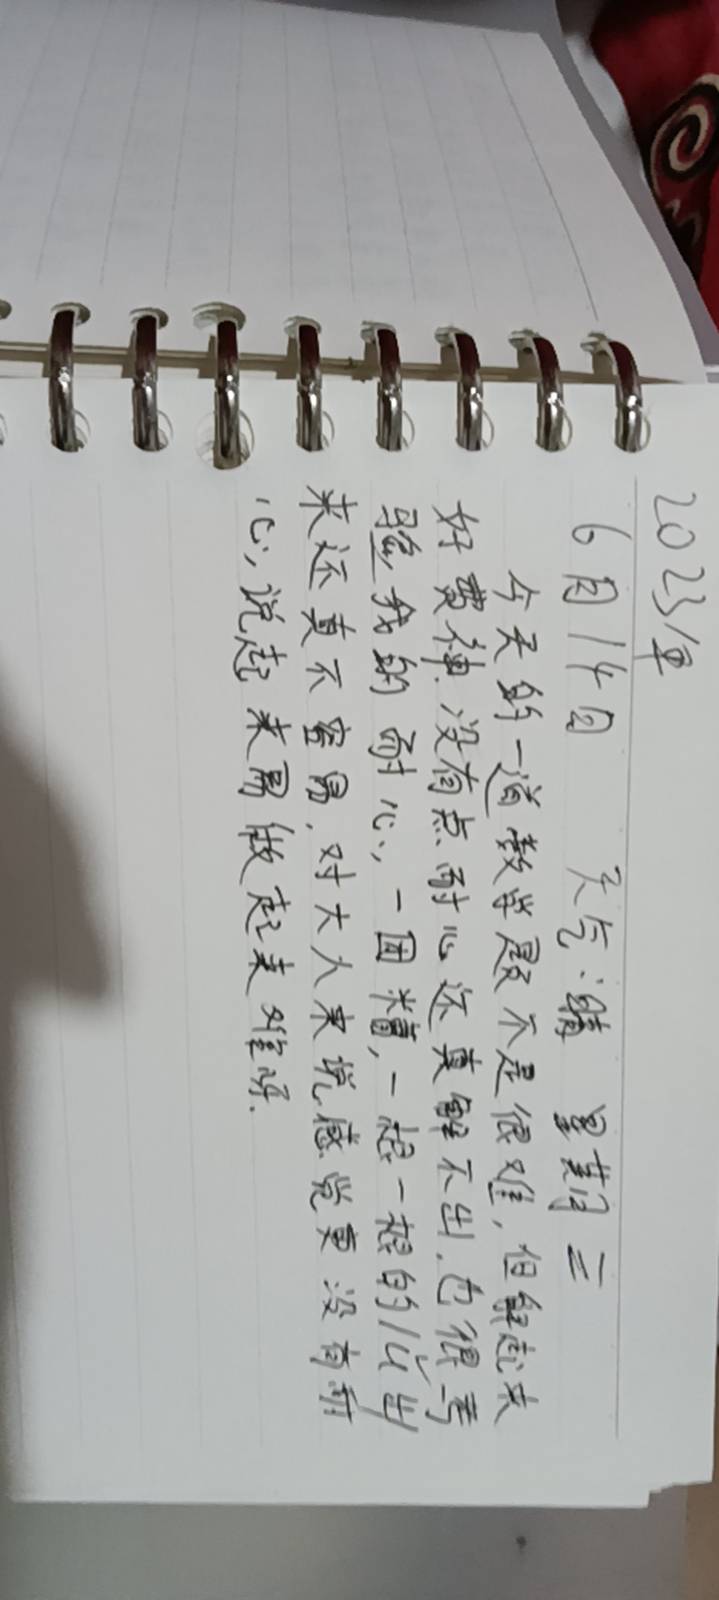 2023年
6月14日 天气:晴 星期二
今天的一道数学题不是很难,但解起来
好费神.没有点耐心还真解不出.也很考
验我的耐心,一团糟,一想一想的 出
来还真不容易,对大人来说感觉更没有耐
心,说起来易做起来难呀.